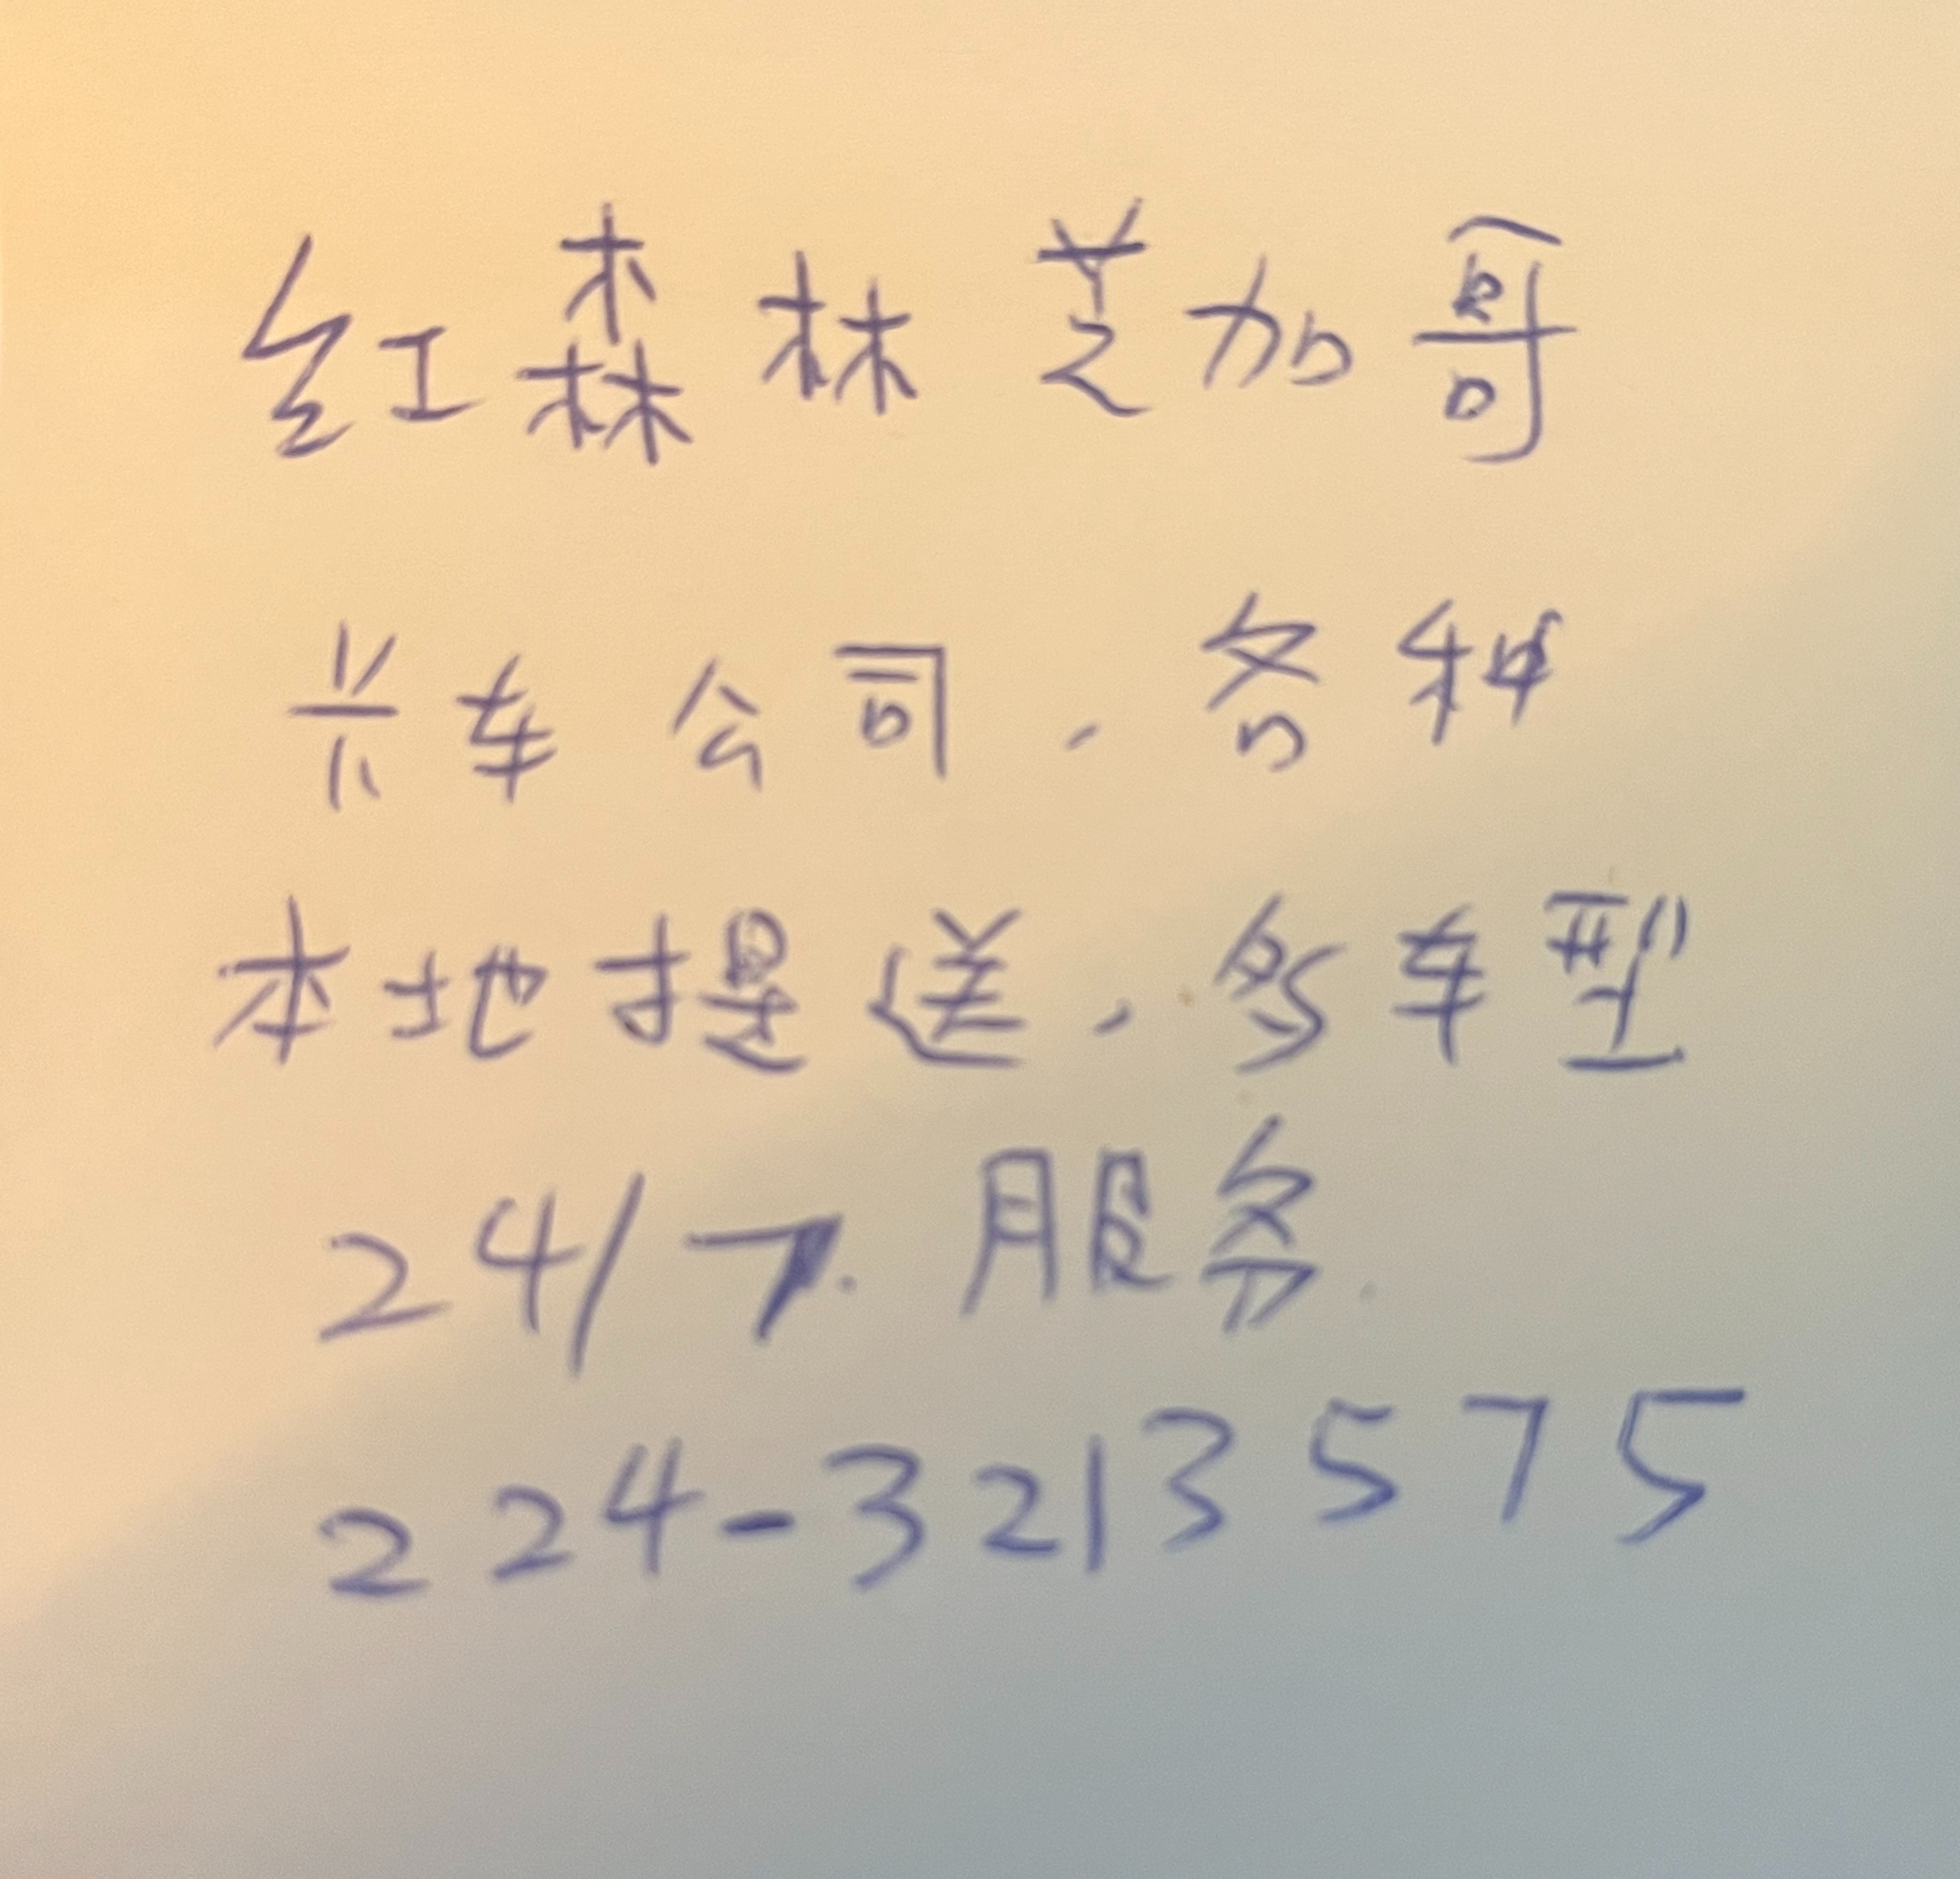 红森林芝加哥
卡车公司,各种
本地提送,多车型
24/7.服务.
224-3213575